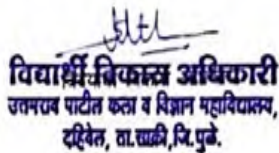 विद्यार्थी विकास अधिकारी
उत्तमराव पाटील कला व विज्ञान महाविद्यालय,
दहिवेल, ता.साक्री,जि.धुळे.